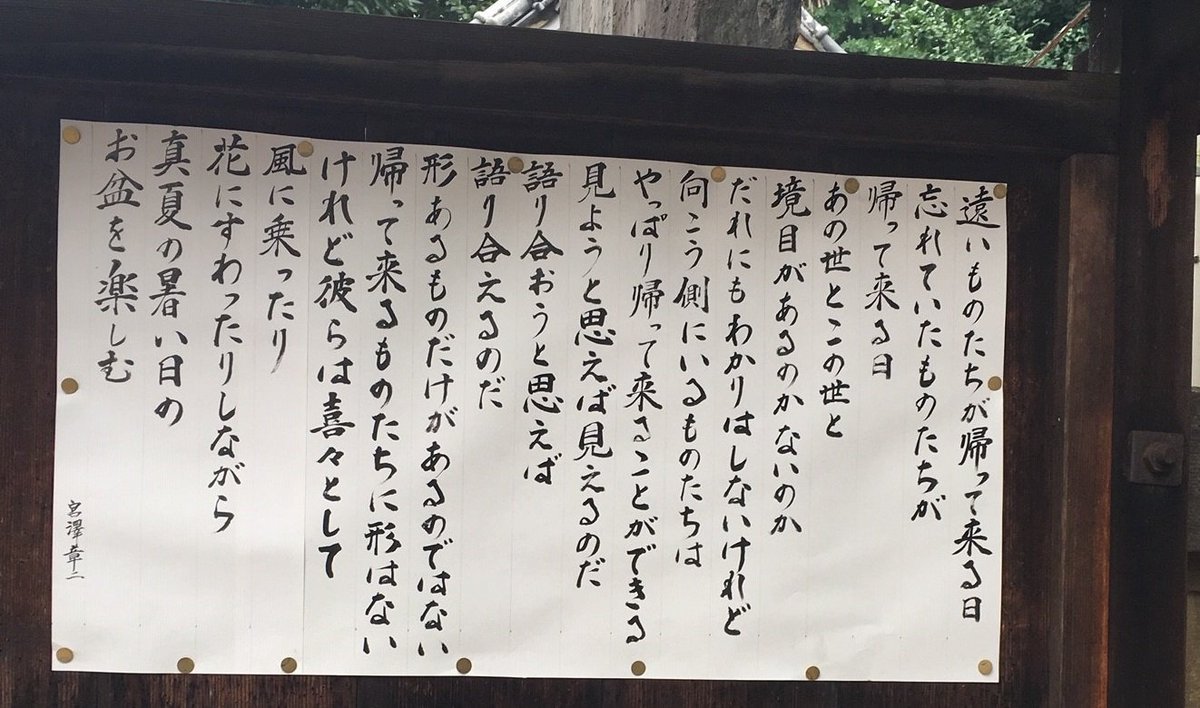 遠いものたちが帰って来る日
忘れていたものたちが
帰って来る日
あの世とこの世と
境目があるのかないのか
だれにもわかりはしないけれど
向こう側にいるものたちは
やっぱり帰って来ることができる
見ようと思えば見えるのだ
語り合おうと思えば
語り合えるのだ
形あるものだけがあるのではない
帰って来るものたちに形はない
けれど彼らは喜々として
風に乗ったり
花にすわったりしながら
真夏の暑い日の
お盆を楽しむ
宮澤章二